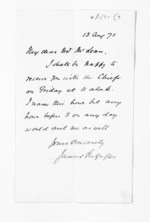 13 Aug 70
My dear Mr McLean,
I shall be happy to
receive you with the Chiefs
on Friday at 11 o'clock.
I name this hour but any
hour before 2 on any day
would suit me as well
Yours Sincerely
James